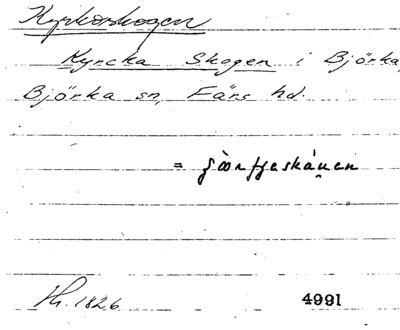 Kyrkoskogen
Kyrcka Skogen i Björka,
Björka sn, Färs hd.
=
1826
4991